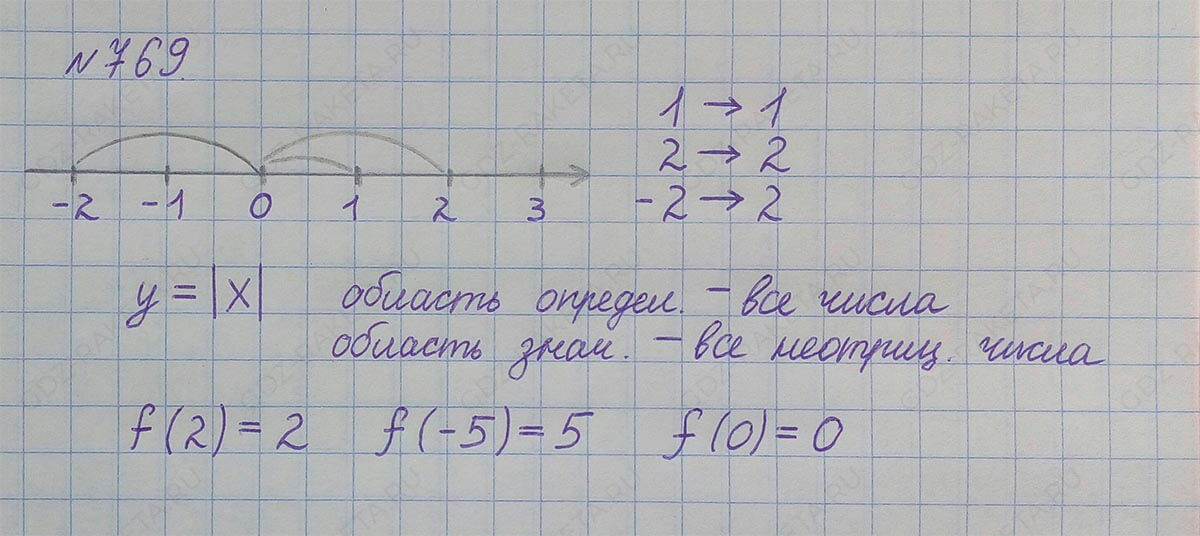 №769
1 → 1
2 → 2
-2 → 2
-2 -1 0 1 2 3
y = |x| область определ. – все числа
область знач. – все неотриц. числа
f(2) = 2 f(-5) = 5 f(0) = 0
GDZ-RAKETA.RU